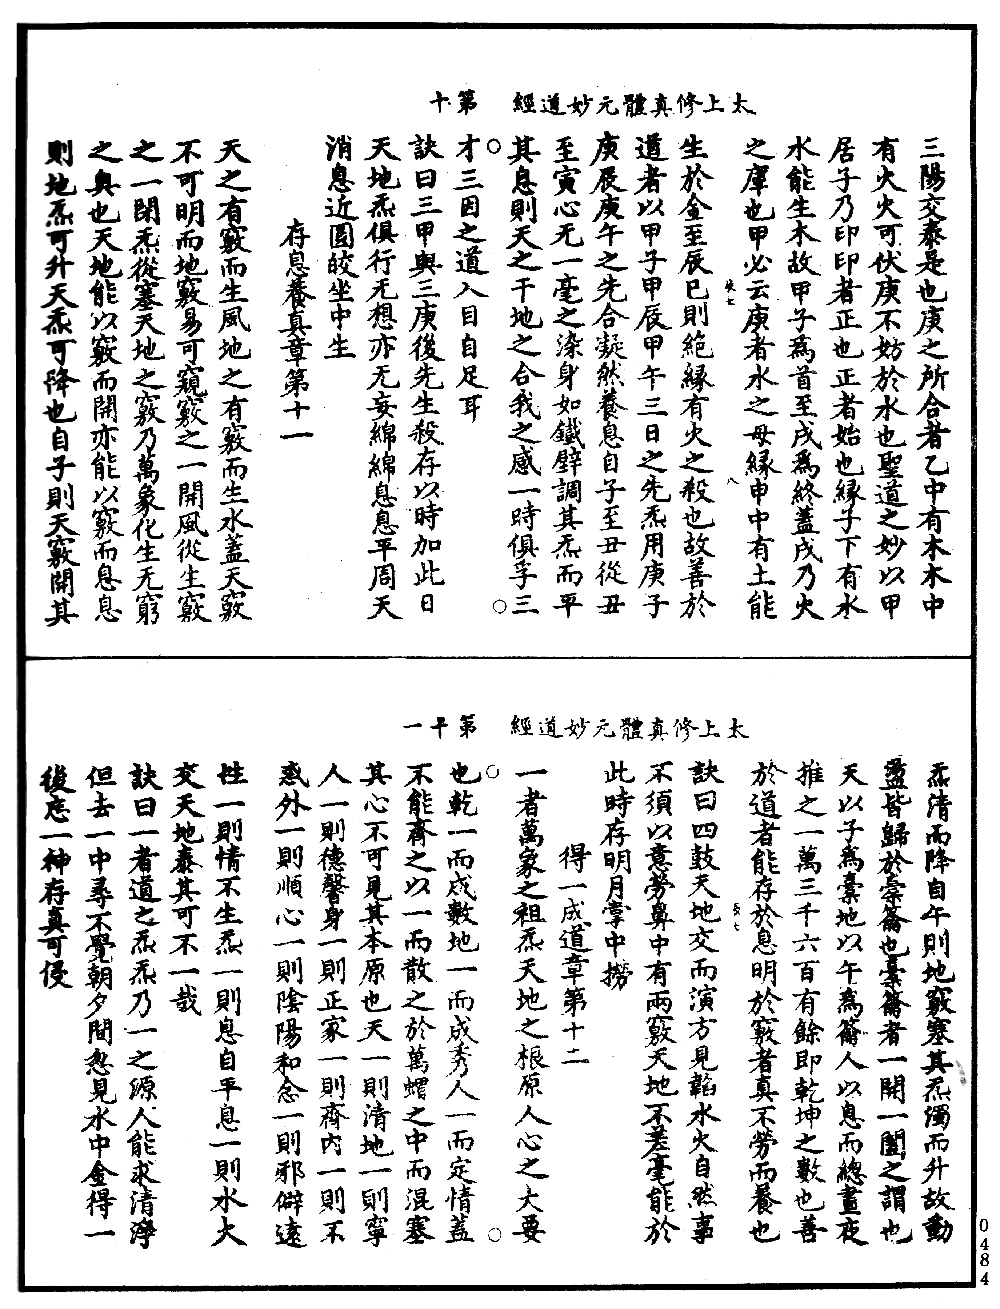 太上修真體元妙道經　第十
三陽交泰是也庚之所合者乙中有木木中
有火火可伏庚不妨於水也聖道之妙以甲
居子乃印印者正也正者始也緣子下有水
水能生木故甲子為首至戌為終蓋戌乃火
之庫也甲必云庚者水之母緣申中有土能
生於金至辰巳則絕緣有火之殺也故善於
道者以甲子甲辰甲午三日之先炁用庚子
庚辰庚午之先合凝然養息自子至丑從丑
至寅心无一毫之染身如鐵壁調其炁而平
其息則天之干地之合我之感一時俱孚三
才三因之道入目自足耳
訣曰三甲與三庚後先生殺存以時加此日
天地炁俱行无想亦无妄綿綿息息平周天
消息近圓皎坐中生
存息養真章第十一
天之有竅而生風地之有竅而生水蓋天竅
不可明而地竅易可窺竅之一開風從生竅
之一閉炁從塞天地之竅乃萬象化生无窮
之奥也天地能以竅而開亦能以竅而息息
則地炁可升天炁可降也自子則天竅開其
太上修真體元妙道經　第十一
炁清而降自午則地竅塞其炁濁而升故動
盪皆歸於橐籥也橐籥者一開一闔之謂也
天以子為橐地以午為籥人以息而總晝夜
推之一萬三千六百有餘即乾坤之數也善
於道者能存於息明於竅者真不勞而養也
訣曰四鼓天地交而演方見韜水火自然事
不須以意勞鼻中有兩竅天地不差毫能於
此時存明月掌中撈
得一成道章第十二
一者萬象之祖炁天地之根原人心之大要
也乾一而成數地一而成秀人一而定情蓋
不能齋之以一而散之於萬蠅之中而混塞
其心不可見其本原也天一則清地一則寧
人一則德馨身一則正家一則齊内一則不
惑外一則順心一則陰陽和念一則邪僻遠
性一則情不生炁一則息自平息一則水火
交天地泰其可不一哉
訣曰一者道之炁炁乃一之源人能求清淨
但去一中尋不覺朝夕間忽見水中金得一
後忘一神存真可侵
0484